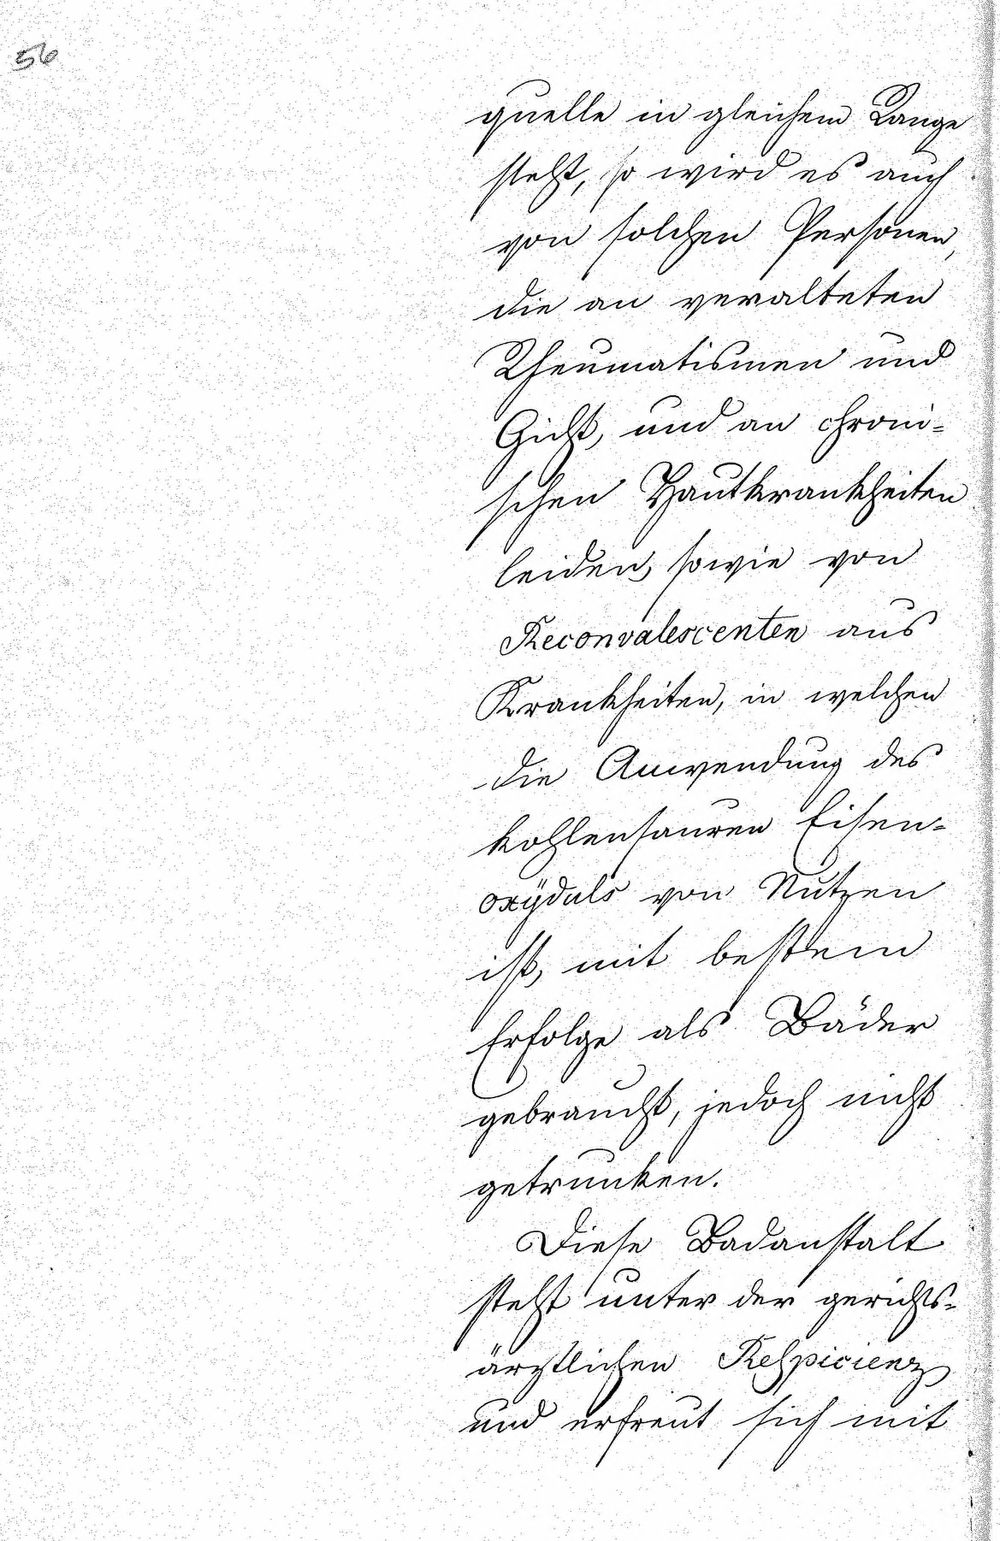 56
quelle in gleichem Range
steht, so wird es auch
von solchen Personen,
die an veralteten
Rheumatismen und
Gicht, und an chroni=
schen Hautkrankheiten
leiden, sowie von
Reconvalescenten aus
Krankheiten, in welchen
die Anwendung des
kohlensauren Eisen=
oxÿduls von Nutzen
ist, mit bestem
Erfolge als Bäder
gebraucht, jedoch nicht
getrunken.
Diese Badanstalt
steht unter der gerichts=
ärztlichen Respicienz
und erfreut sich mit